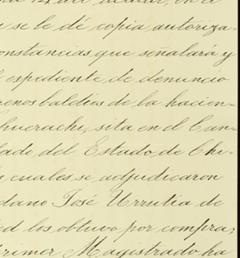 se le dé copia autoriza-
constancias que señalará y
expediente de denuncio
enos baldíos de la hacien-
huerachi, sita en el Can-
del Estado de Chi-
cuales se adjudicaron
dano José Urrutia de
los obtuvo por compra;
rimer Magistrado ha